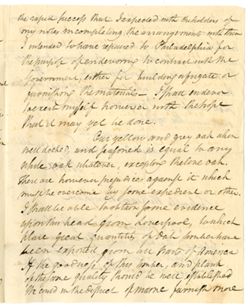 the rapid success that I expected with the holders of
my notes in compleating the arrangement with them
I intended to have repaired to Philadelphia for
the purpose of endeavoring to contract with the
Government, either for building a frigate or
furnishing the materials — I shall endeavor
present myself however with the hope
that it may yet be done.
Our yellow and grey oak when
well docked and seasoned is equal to any
white oak whatever, except the live oak.
There are however prejudices against it which
must be overcome by some expedient or other
I shall be able to obtain some evidence
upon that head from Liverpool, to which
place great quantities of Oak
been exported from this part of America
If the goodness of the
of the same quality should be once established
We could in the district of maine furnish more